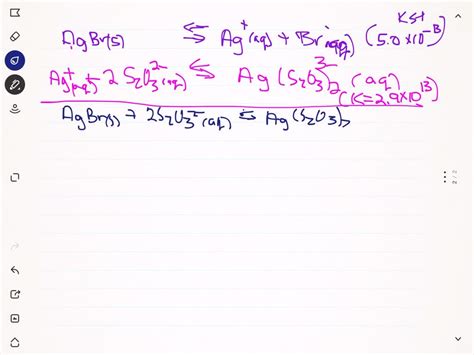 AgBr(s) ⇌ Ag⁺(aq) + Br⁻(aq) (5.0×10⁻¹³)
Ag⁺(aq) + 2 S₂O₃²⁻(aq) ⇌ Ag(S₂O₃)₂³⁻(aq)
(K=2.9×10¹³)
AgBr(s) + 2S₂O₃²⁻(aq) ⇌ Ag(S₂O₃)₂